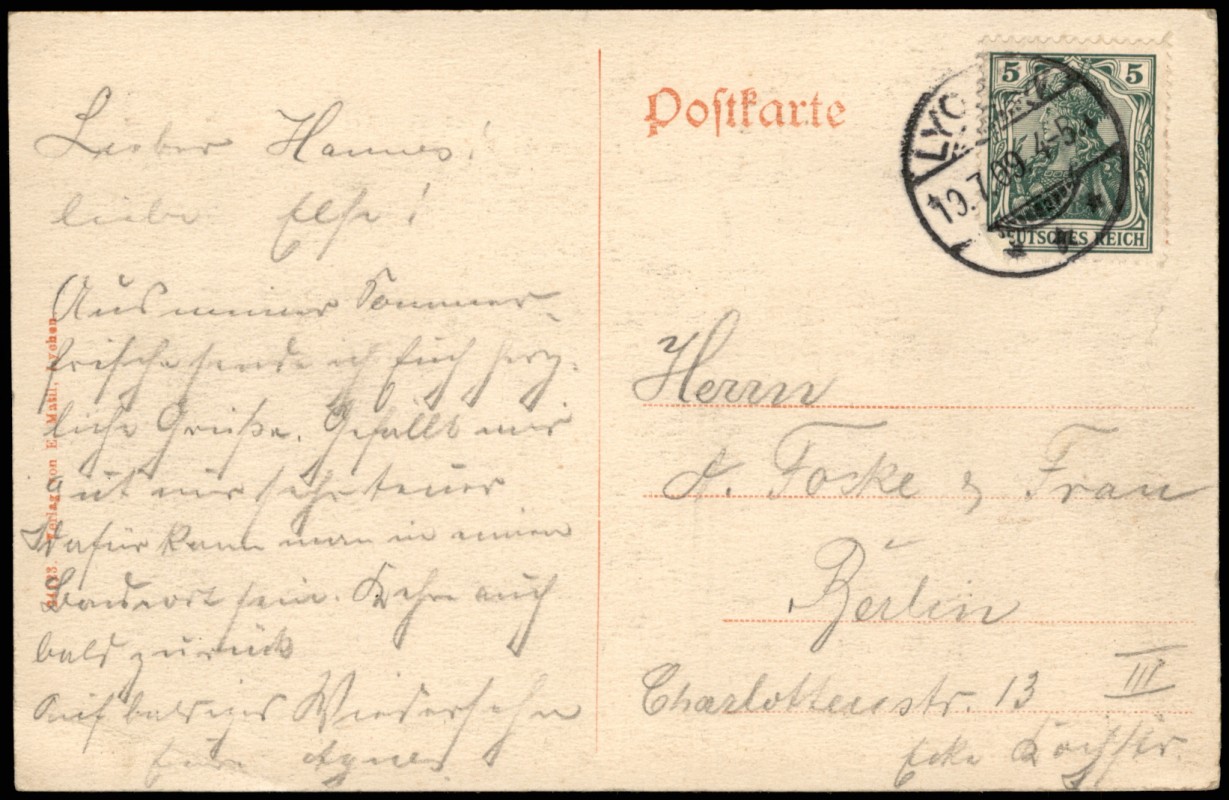 Lieber Hannes!
liebe Else!
Aus meiner Sommer-
frische sende ich Euch herz-
liche Grüße. Gefällt mir
gut nur sehr teuer
Dafür kann man in einen
Badeort sein. Kehre auch
bald zurück
Auf baldiges Wiedersehn
Eure Agnes
Verlag von E. Lychen
Postkarte
5 5
DEUTSCHES REICH
LYCHEN
10.7.09. 4-5
Herrn
A. Focke & Frau
Berlin
Charlottenstr. 13 III
Ecke Kochstr.